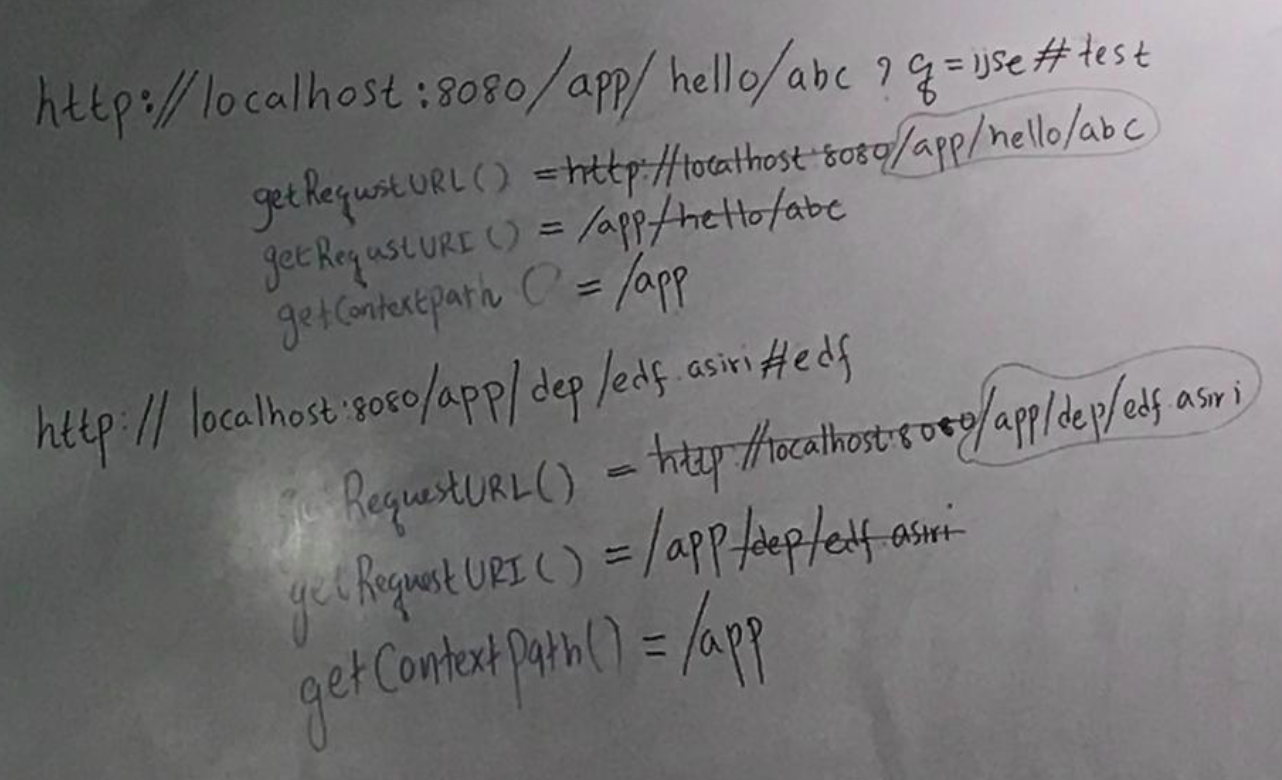 http://localhost:8080/app/hello/abc ? q=ijse#test
getRequstURL() = http://localhost:8080/app/hello/abc
getRequstURI() = /app/hello/abc
getContextpath () = /app
http://localhost:8080/app/dep/edf.asiri#edf
RequestURL() = http://localhost:8080/app/dep/edf.asiri
getRequestURI() = /app/dep/edf.asiri
getContextPath() = /app